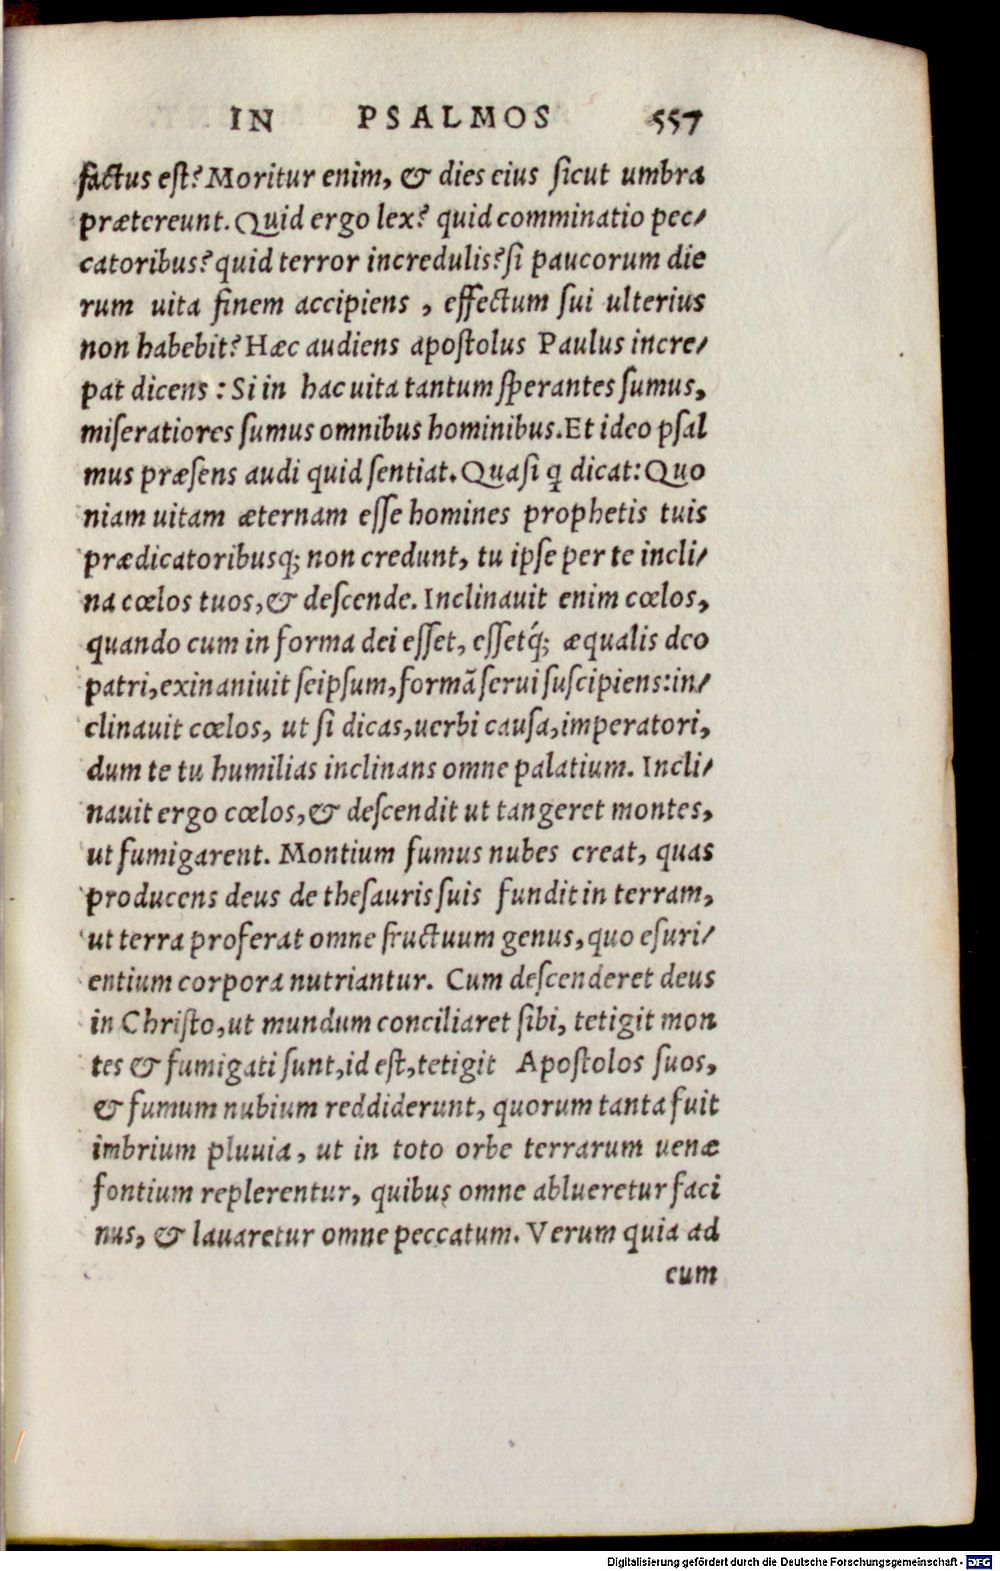 IN PSALMOS 557
factus eſt? Moritur enim, & dies eius ſicut umbra
prætereunt. Quid ergo lex? quid comminatio pec/
catoribus? quid terror incredulis? ſi paucorum die
rum uita finem accipiens , effectum ſui ulterius
non habebit? Hæc audiens apoſtolus Paulus incre/
pat dicens : Si in hac uita tantum ſperantes ſumus,
miſeratiores ſumus omnibus hominibus. Et ideo pſal
mus præſens audi quid ſentiat. Quaſi ꝗ dicat: Quo
niam uitam æternam eſſe homines prophetis tuis
prædicatoribusq; non credunt, tu ipſe per te incli/
na cœlos tuos, & deſcende. Inclinauit enim cœlos,
quando cum in forma dei eſſet, eſſetq́; æqualis deo
patri, exinaniuit ſeipſum, formã ſerui ſuſcipiens: in/
clinauit cœlos, ut ſi dicas, uerbi cauſa, imperatori,
dum te tu humilias inclinans omne palatium. Incli/
nauit ergo cœlos, & deſcendit ut tangeret montes,
ut fumigarent. Montium fumus nubes creat, quas
producens deus de theſauris ſuis fundit in terram,
ut terra proferat omne fructuum genus, quo eſuri/
entium corpora nutriantur. Cum deſcenderet deus
in Chriſto, ut mundum conciliaret ſibi, tetigit mon
tes & fumigati ſunt, id eſt, tetigit Apoſtolos ſuos,
& fumum nubium reddiderunt, quorum tanta fuit
imbrium pluuia, ut in toto orbe terrarum uenæ
fontium replerentur, quibus omne ablueretur faci
nus, & lauaretur omne peccatum. Verum quia ad
cum
Digitalisierung gefördert durch die Deutsche Forschungsgemeinschaft - DFG